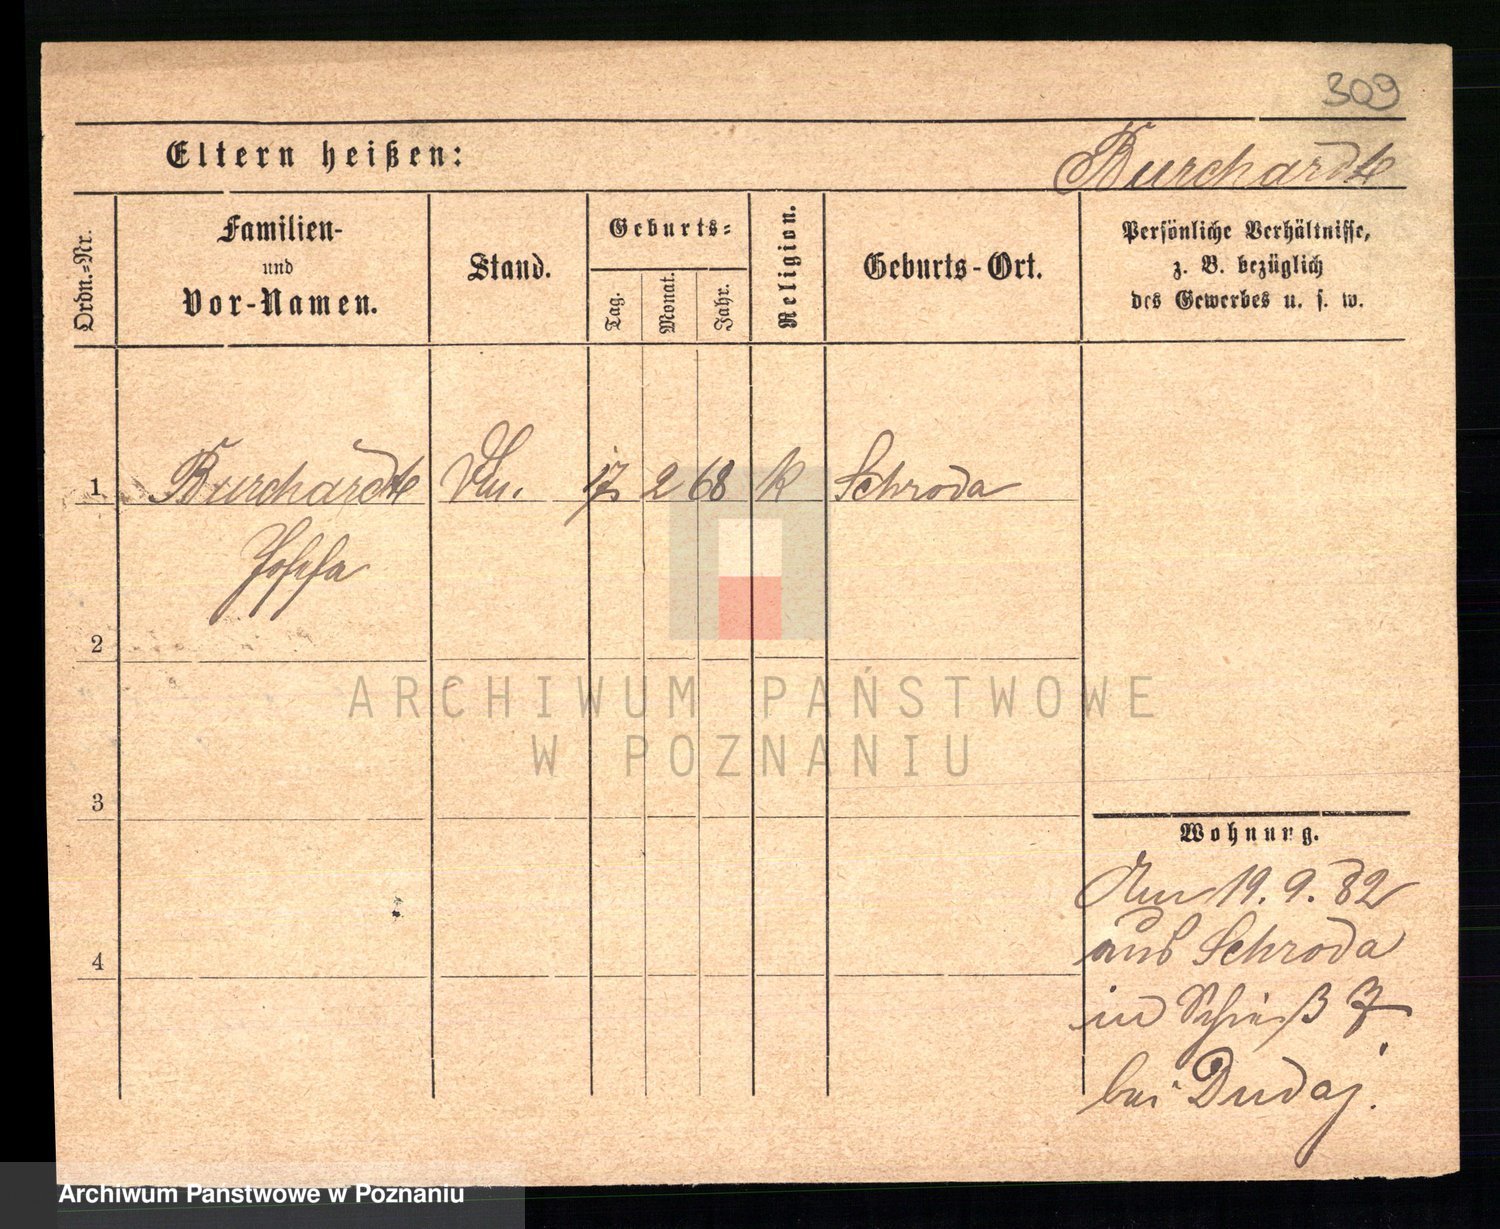 309
Eltern heißen:
Burchardt
Ordn.=Nr.
Familien-
und
Vor-Namen.
Stand.
Geburts=
Tag.
Monat.
Jahr.
Religion.
Geburts-Ort.
Persönliche Verhältnisse,
z. B. bezüglich
des Gewerbes u. s. w.
1 Burchardt 17 2 68 k Schroda
2
ARCHIWUM PAŃSTWOWE
W POZNANIU
3
Wohnung.
Am 19. 9. 82
aus Schroda
in Schieß 7
4
bei Dudaj.
Archiwum Państwowe w Poznaniu